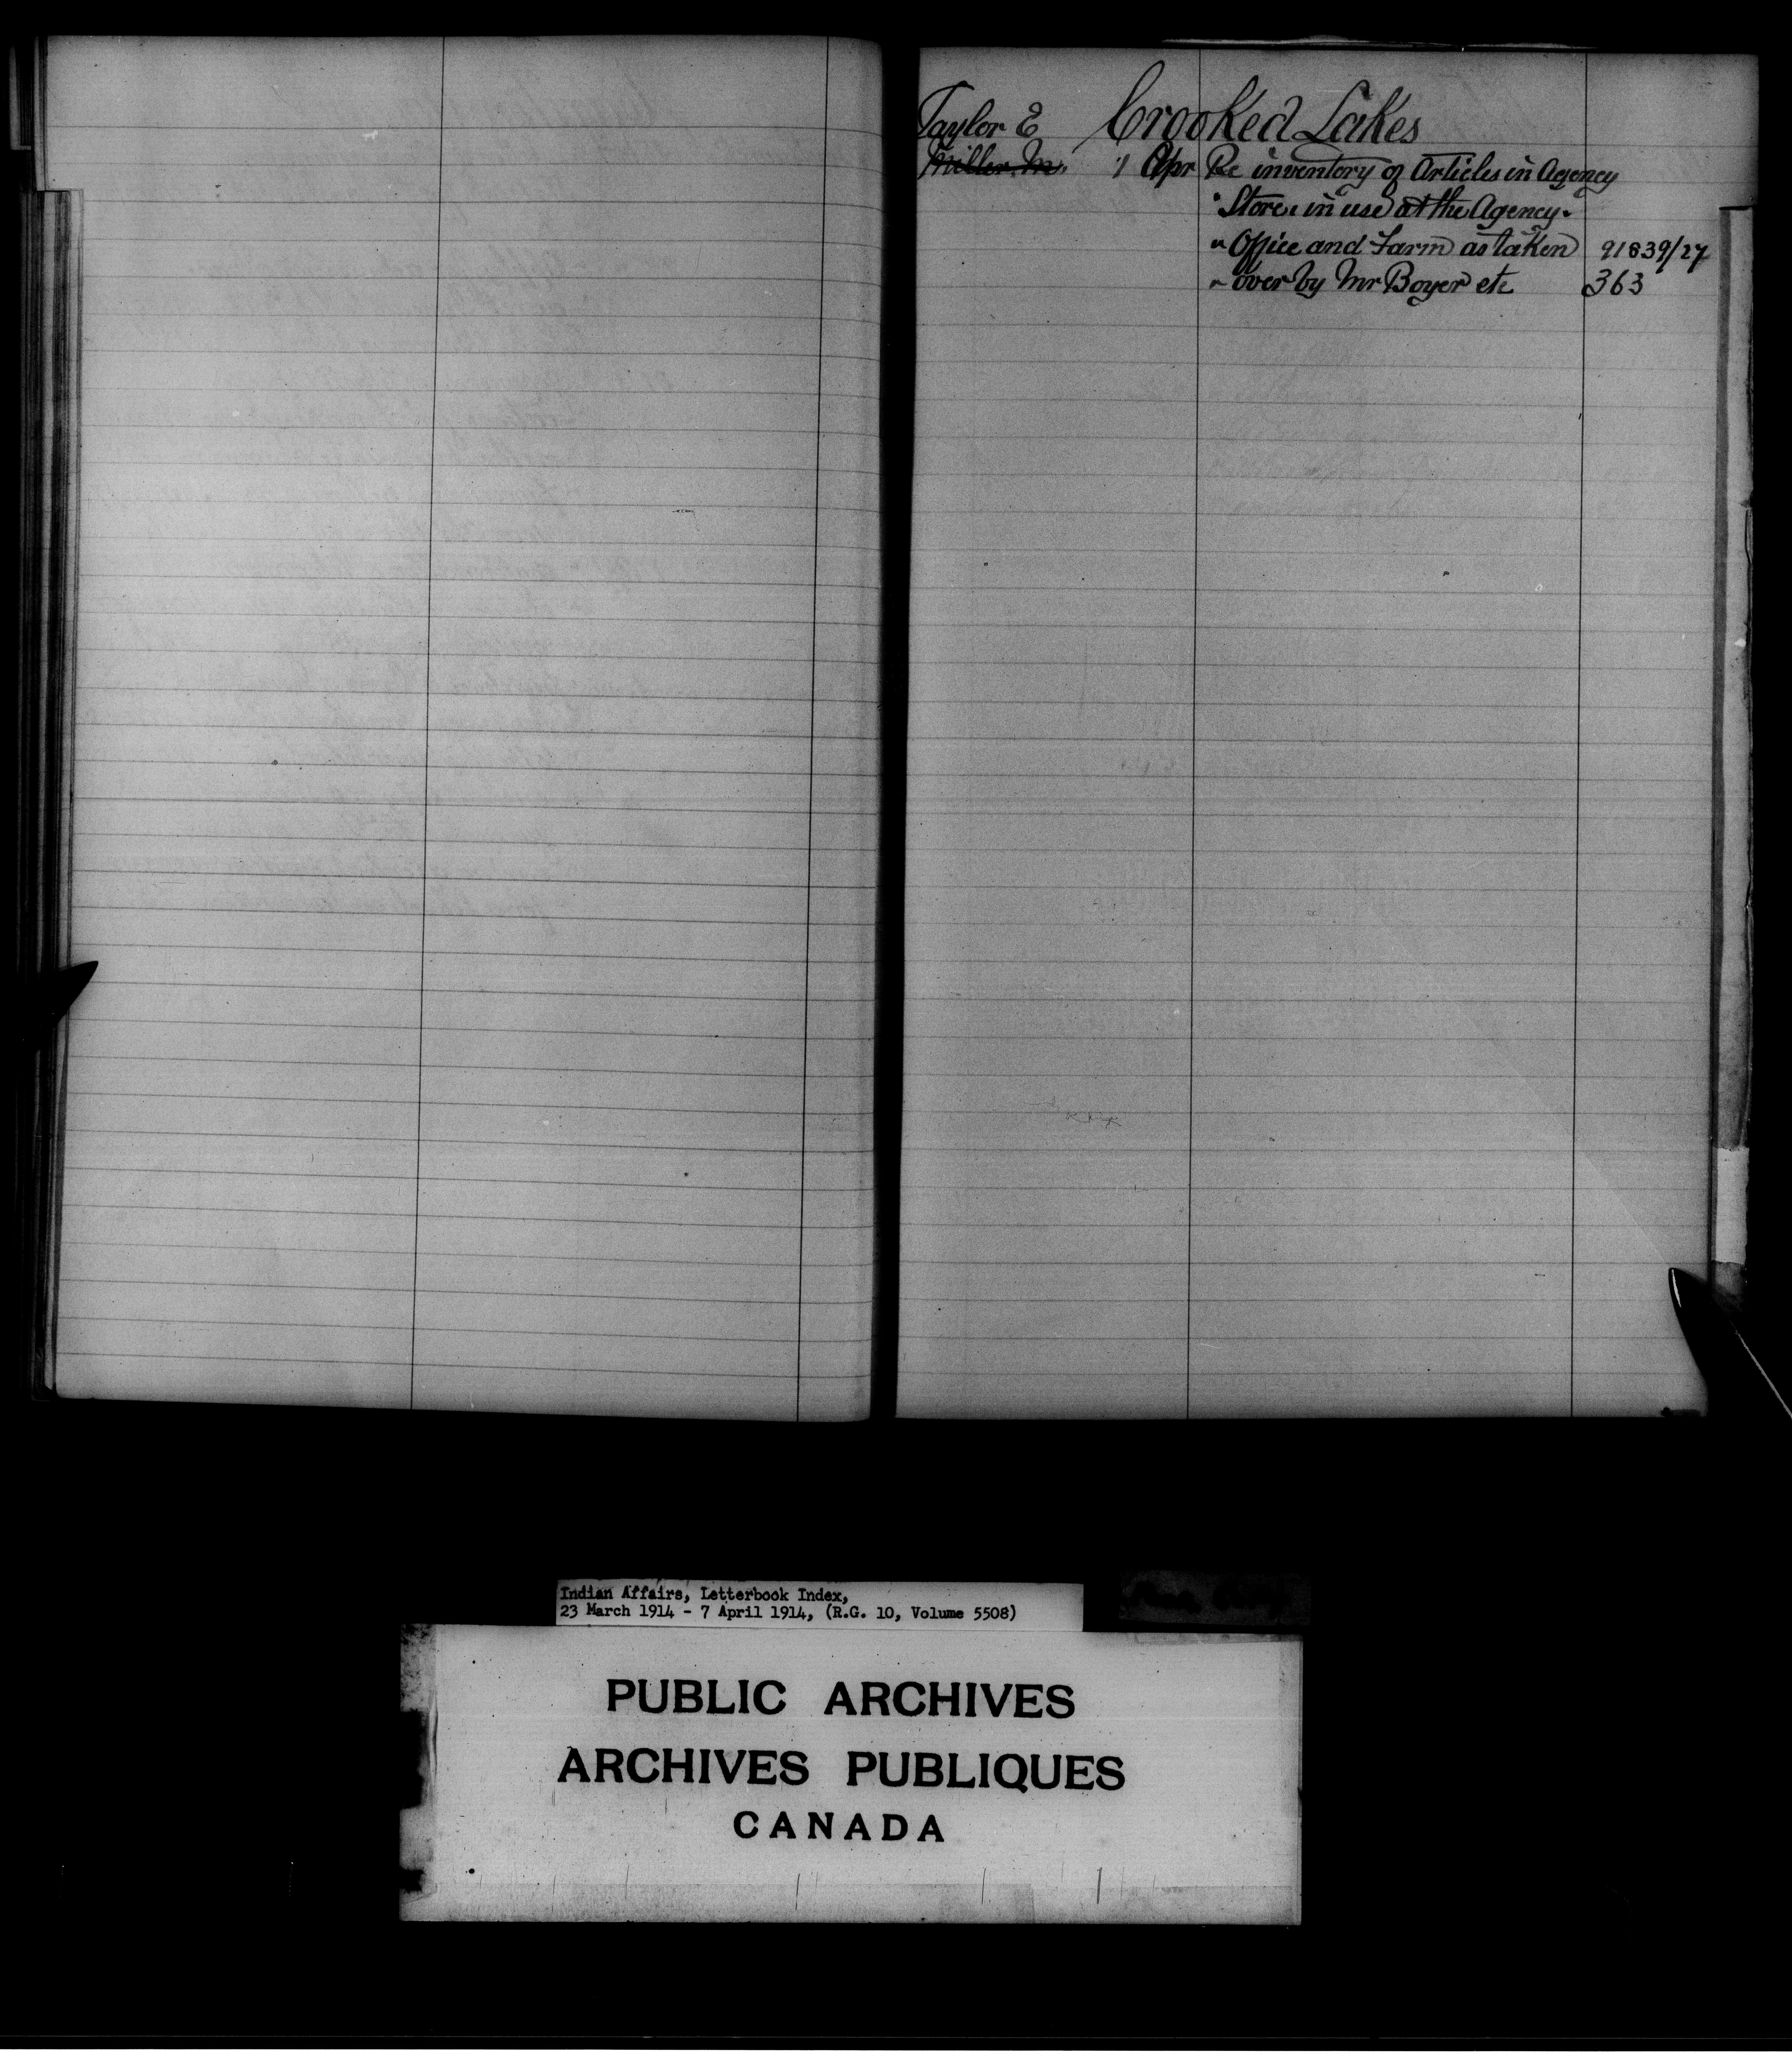 Taylor E Crooked Lakes
Miller M. 1 Apr Re inventory of Articles in Agency
" Store, in use at the Agency.
" Office and Farm as taken 91839/27
" over by Mr Boyer etc 363
Indian Affairs, Letterbook Index,
23 March 1914 - 7 April 1914, (R.G. 10, Volume 5508)
PUBLIC ARCHIVES
ARCHIVES PUBLIQUES
CANADA